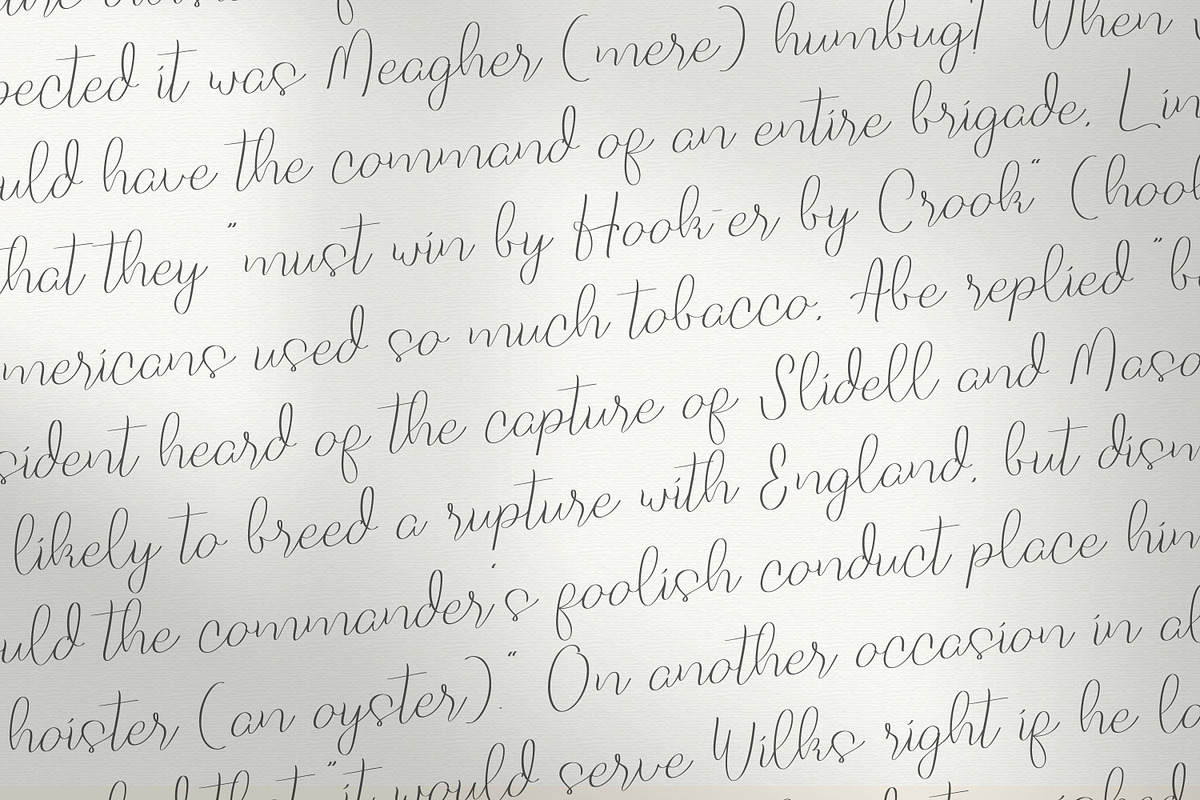 pected it was Meagher (mere) humbug! When
uld have the command of an entire brigade. Lin
that they "must win by Hook-er by Crook" (hook
mericans used so much tobacco. Abe replied "b
sident heard of the capture of Slidell and Maso
likely to breed a rupture with England, but dism
uld the commander's foolish conduct place him
hoister (an oyster)." On another occasion in al
that "it would serve Wilks right if he lo